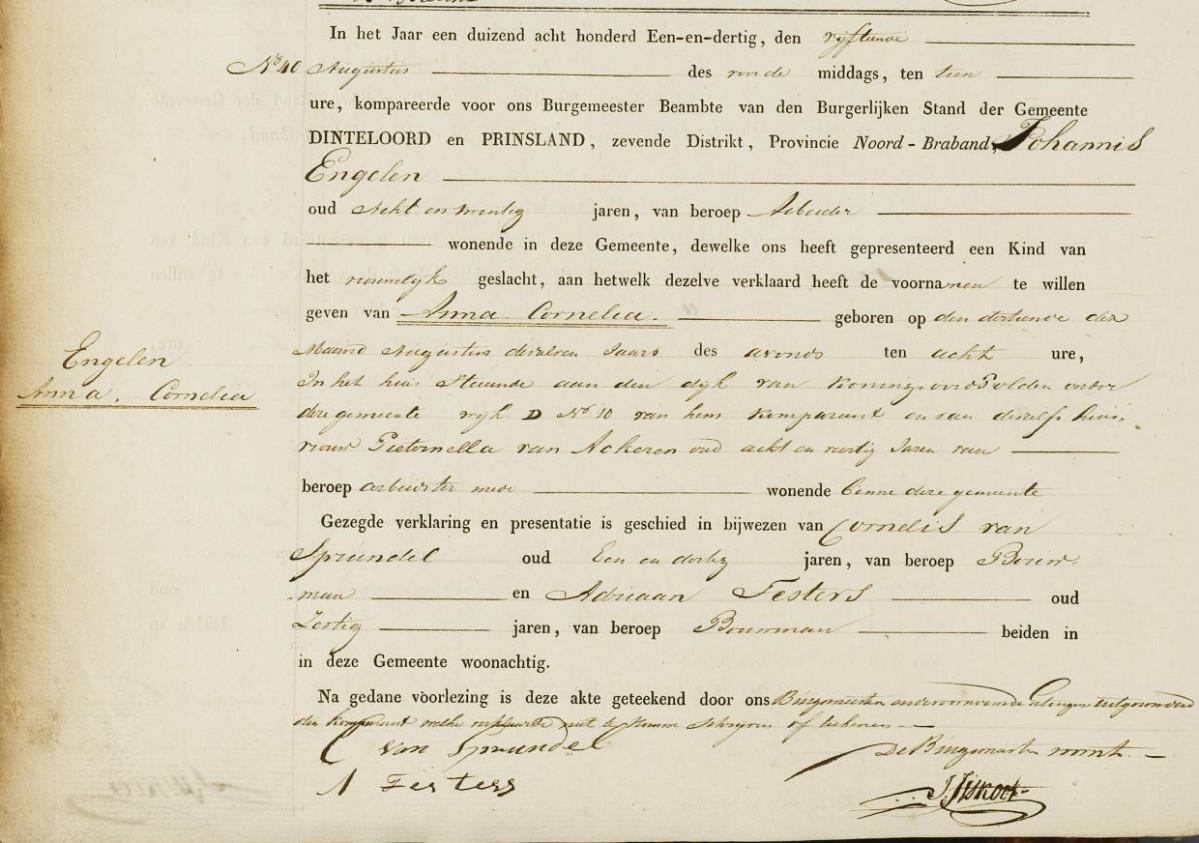 In het Jaar een duizend acht honderd Een-en-dertig, den vyftiende
No 40 Augustus des voorde middags, ten tien
ure, kompareerde voor ons Burgemeester Beambte van den Burgerlijken Stand der Gemeente
DINTELOORD en PRINSLAND, zevende Distrikt, Provincie Noord-Braband, Johannis
Engelen
oud Acht en twentig jaren, van beroep Arbeider
wonende in deze Gemeente, dewelke ons heeft gepresenteerd een Kind van
het vrouwelyk geslacht, aan hetwelk dezelve verklaard heeft de voornamen te willen
geven van Anna Cornelia. geboren op den dertiende der
Maand Augustus dezelven Jaars des avonds ten acht ure,
Engelen
Anna, Cornelia
In het huis Staande aan den dyk van Konings oord Polder onder
deze gemeente wyk D No 10 van hem Komparant en van deszelfs huis
vrouw Pieternella van Ackeren oud acht en Jaren van
beroep arbeidster mede wonende binne deze gemeente
Gezegde verklaring en presentatie is geschied in bijwezen van Cornelis van
Sprundel oud Een en dertig jaren, van beroep Bouw-
man en Adriaan Testers oud
Zestig jaren, van beroep Bouwman beiden in
in deze Gemeente woonachtig.
Na gedane voorlezing is deze akte geteekend door ons Burgemeester en de Getuigen uitgezonderd
den komparant welke verklaarde niet te kunnen Schryven of teekenen
C van Sprundel
De Burgemeester
A Testers